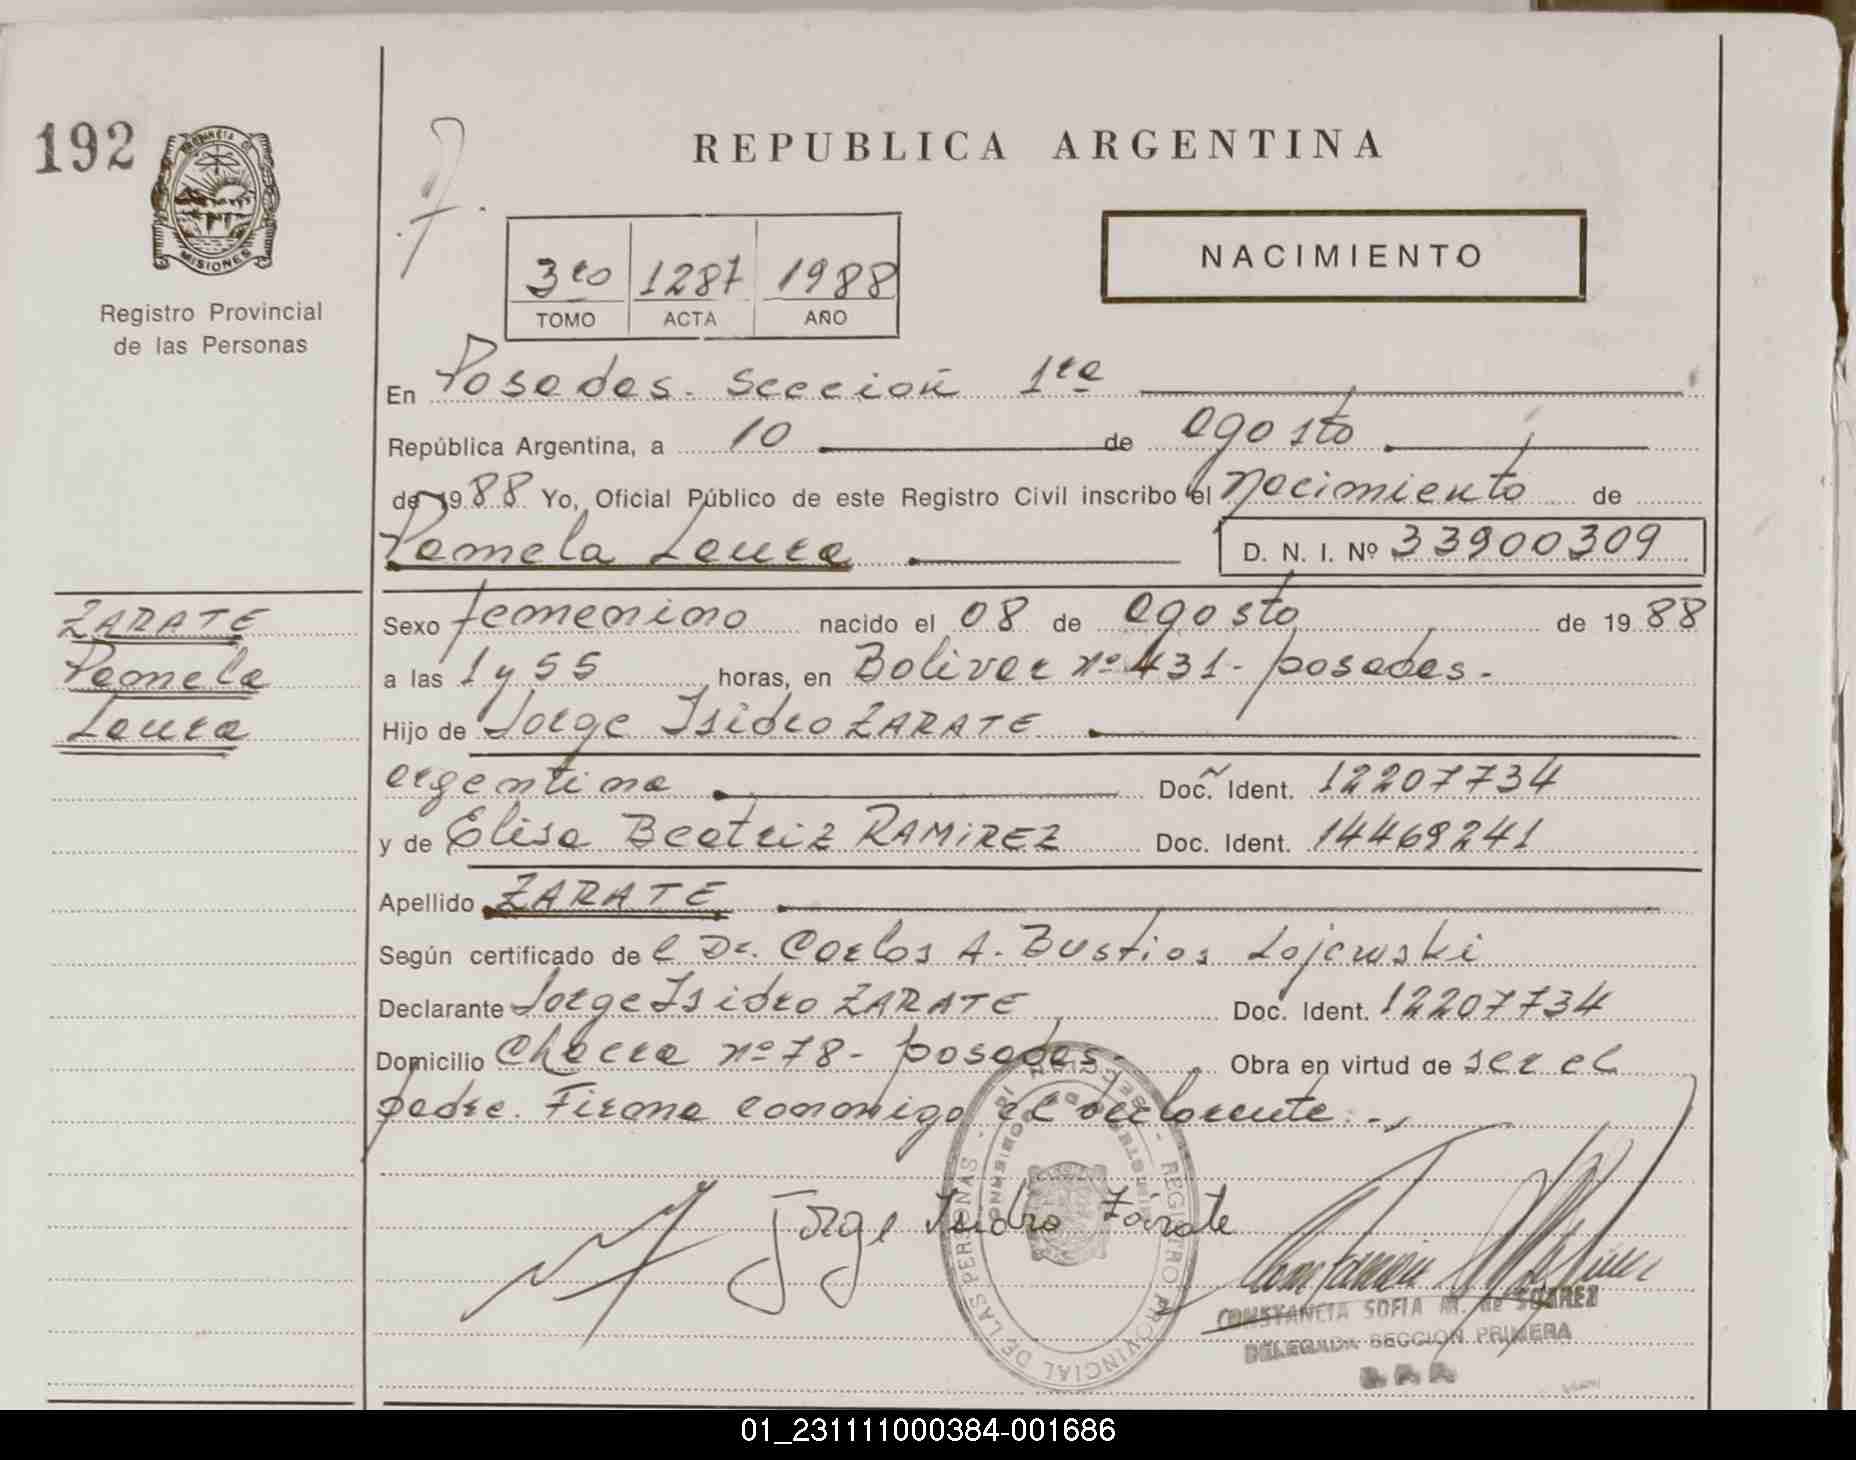 192
PROVINCIA DE
MISIONES
Registro Provincial
de las Personas
REPUBLICA ARGENTINA
NACIMIENTO
3ro 1287 1988
TOMO ACTA AÑO
En Posadas. Sección 1ra
República Argentina, a 10 de agosto
de 1988 Yo, Oficial Público de este Registro Civil inscribo el nacimiento de
Pamela Laura D. N. I. Nº 33900309
ZARATE
Pamela
Laura
Sexo femenino nacido el 08 de agosto de 1988
a las 1 y 55 horas, en Bolivar nº 431 - posadas -
Hijo de Jorge Isidro ZARATE
argentina Doc. Ident. 12207734
y de Elisa Beatriz RAMIREZ Doc. Ident. 14469241
Apellido ZARATE
Según certificado de l Dr. Carlos A. Bustios Lojewski
Declarante Jorge Isidro ZARATE Doc. Ident. 12207734
Domicilio Chacra nº 78 - posadas - Obra en virtud de ser el
padre. Firma conmigo el declarante.-
Jorge Isidro Zárate
REGISTRO PROVINCIAL DE LAS PERSONAS
CONSTANCIA SOFIA M. de SUAREZ
DELEGADA SECCION PRIMERA
01_231111000384-001686